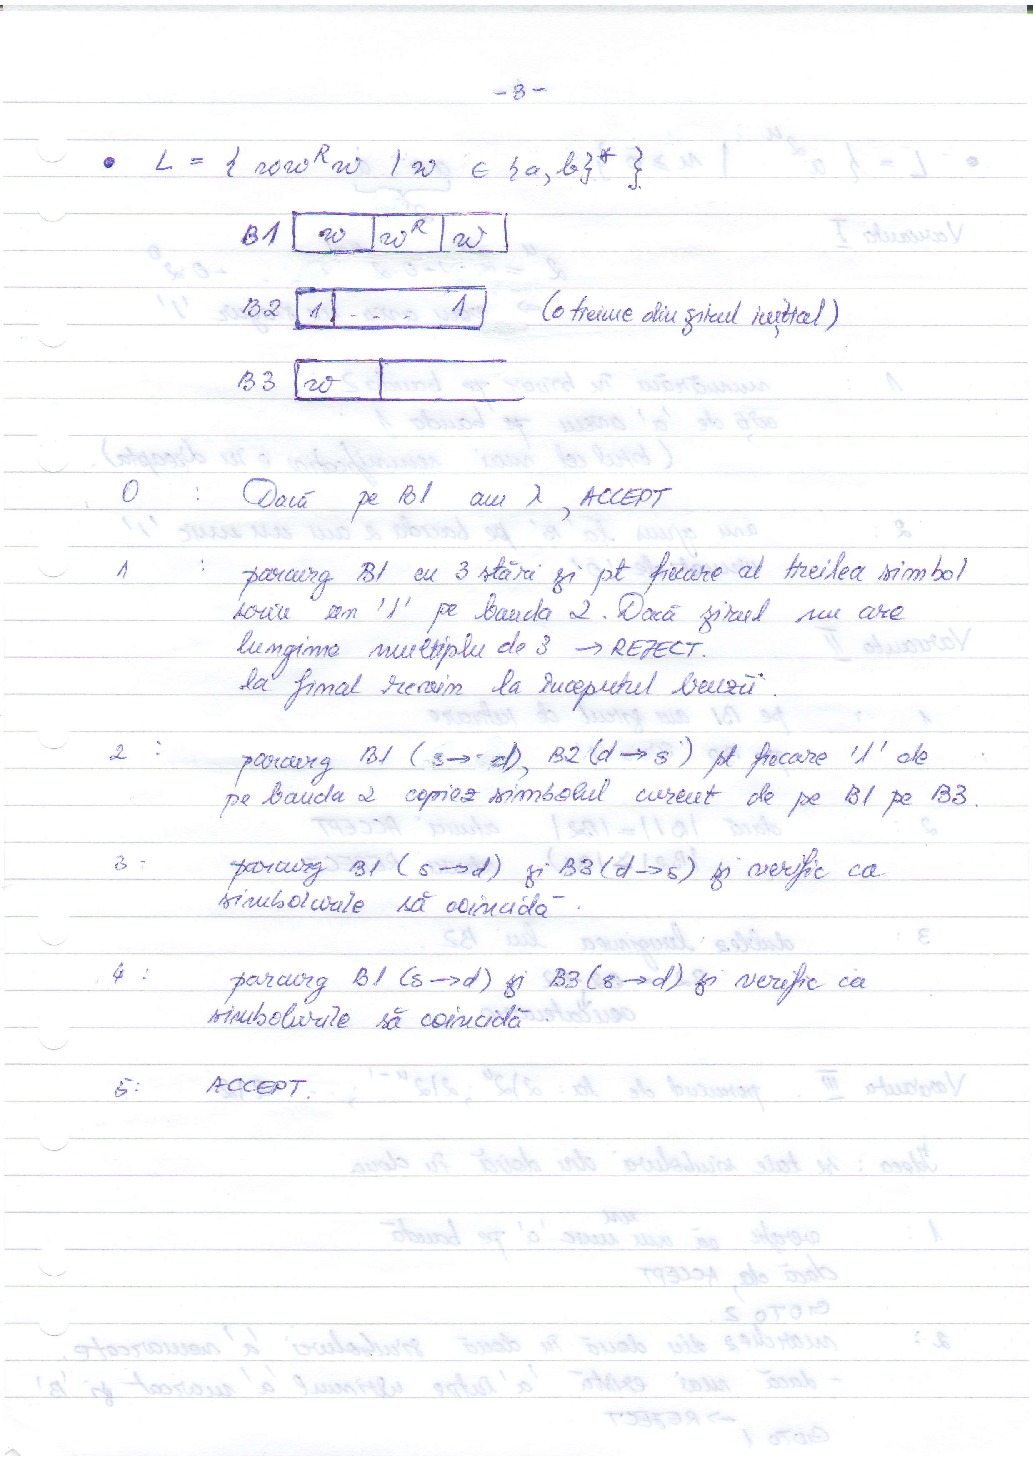 -8-
• L = { w w^R w | w ∈ {a, b}* }
B1 w w^R w
B2 1 . . . . 1 (o treime din șirul inițial)
B3 w
0 : Dacă pe B1 am λ, ACCEPT
1 : parcurg B1 cu 3 stări și pt fiecare al treilea simbol
scriu un '1' pe banda 2. Dacă șirul nu are
lungime multiplu de 3 → REJECT.
la final revin la începutul benzii.
2 : parcurg B1 (s→d), B2 (d→s) pt fiecare '1' de
pe banda 2 copiez simbolul curent de pe B1 pe B3.
3 : parcurg B1 (s→d) și B3 (d→s) și verific ca
simbolurile să coincidă.
4 : parcurg B1 (s→d) și B3 (s→d) și verific ca
simbolurile să coincidă.
5 : ACCEPT.